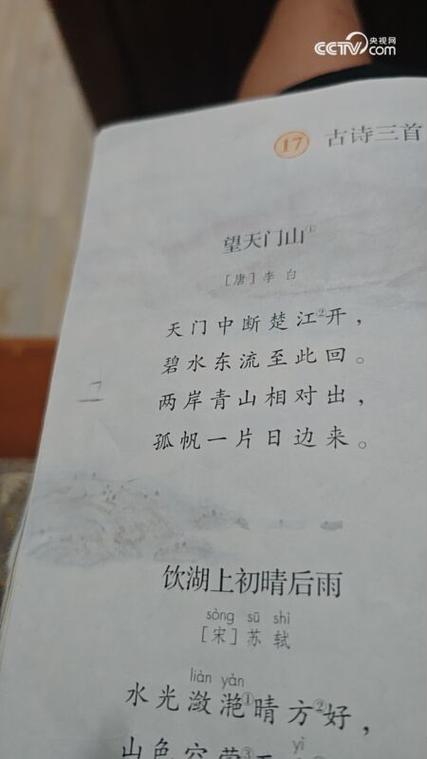 央视网
CCTV.com
17 古诗三首
望天门山①
［唐］李白
天门中断楚江②开，
碧水东流至此回。
两岸青山相对出，
孤帆一片日边来。
饮湖上初晴后雨
sòng sū shì
［宋］苏轼
liàn yàn
水光潋滟①晴方②好，
yì
山色空蒙③